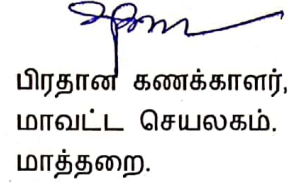 பிரதான கணக்காளர்,
மாவட்ட செயலகம்.
மாத்தறை.